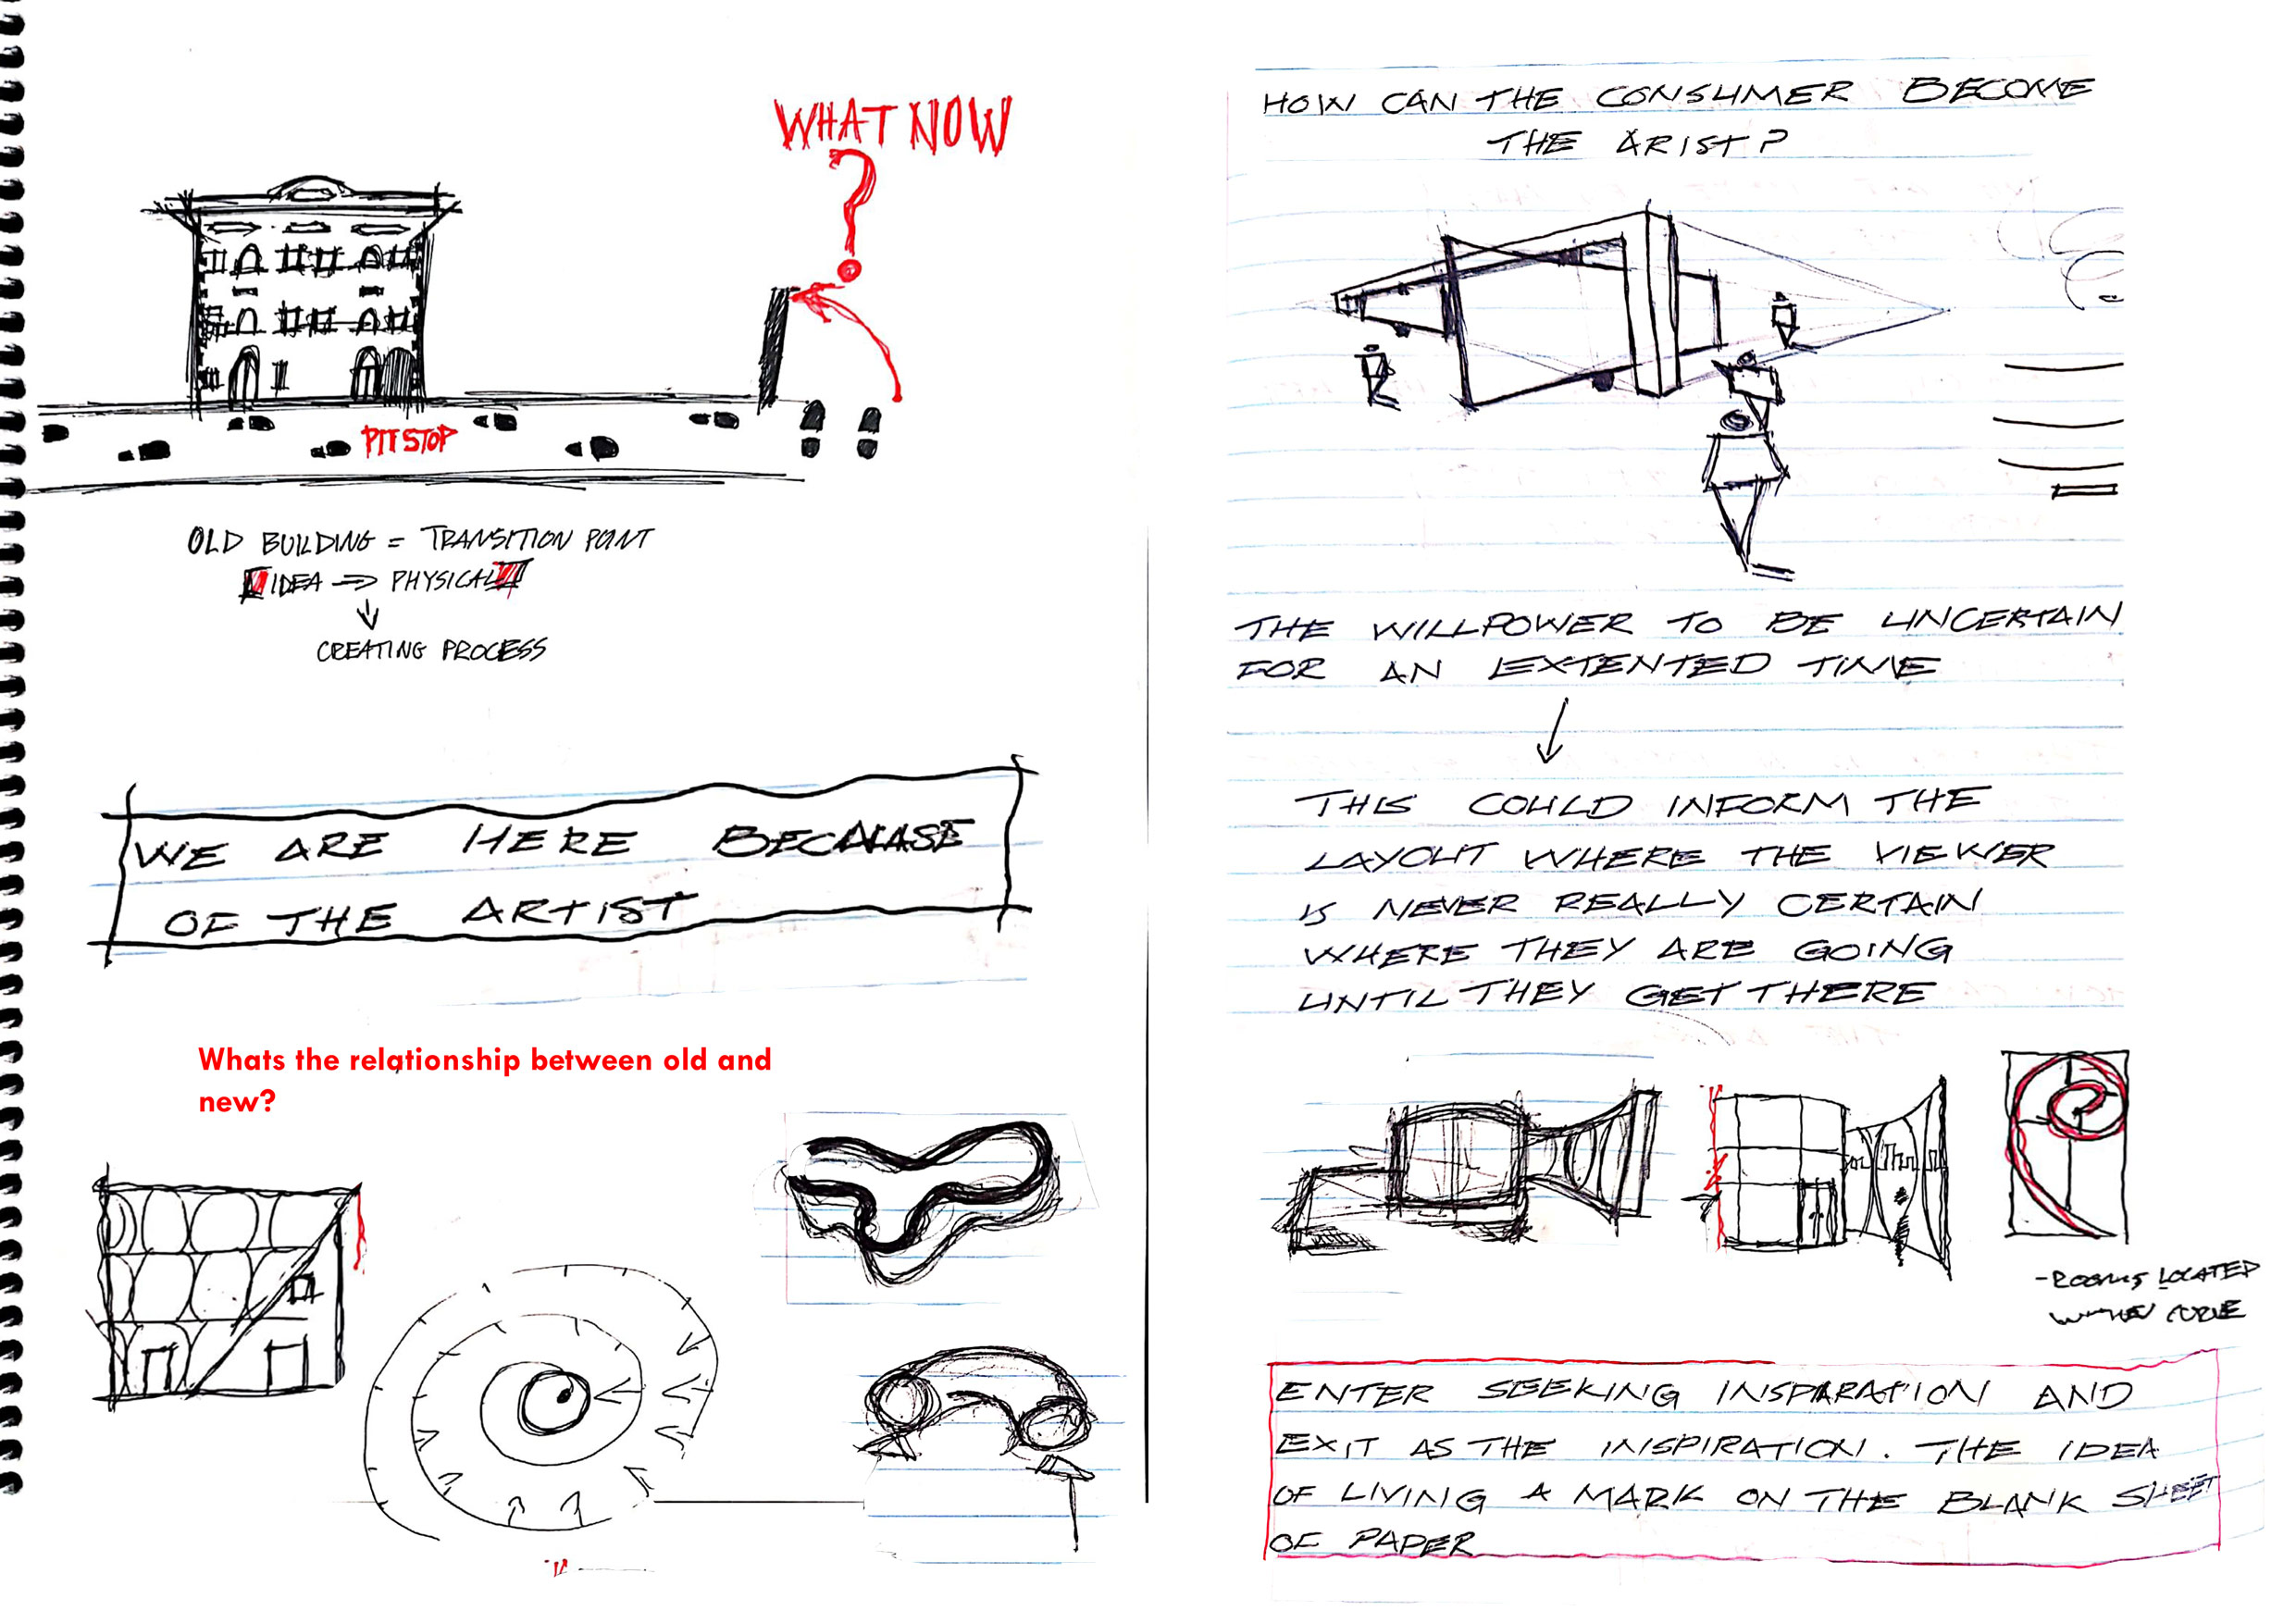 WHAT NOW
?
PIT STOP
OLD BUILDING = TRANSITION POINT
IDEA ⇒ PHYSICAL
↓
CREATING PROCESS
WE ARE HERE BECAUSE
OF THE ARTIST
Whats the relationship between old and
new?
HOW CAN THE CONSUMER BECOME
THE ARIST?
THE WILLPOWER TO BE UNCERTAIN
FOR AN EXTENTED TIME
↓
THIS COULD INFORM THE
LAYOUT WHERE THE VIEWER
IS NEVER REALLY CERTAIN
WHERE THEY ARE GOING
UNTIL THEY GET THERE
-ROOMS LOCATED
ENTER SEEKING INSPARATION AND
EXIT AS THE INISPIRATION. THE IDEA
OF LIVING A MARK ON THE BLANK SHEET
OF PAPER